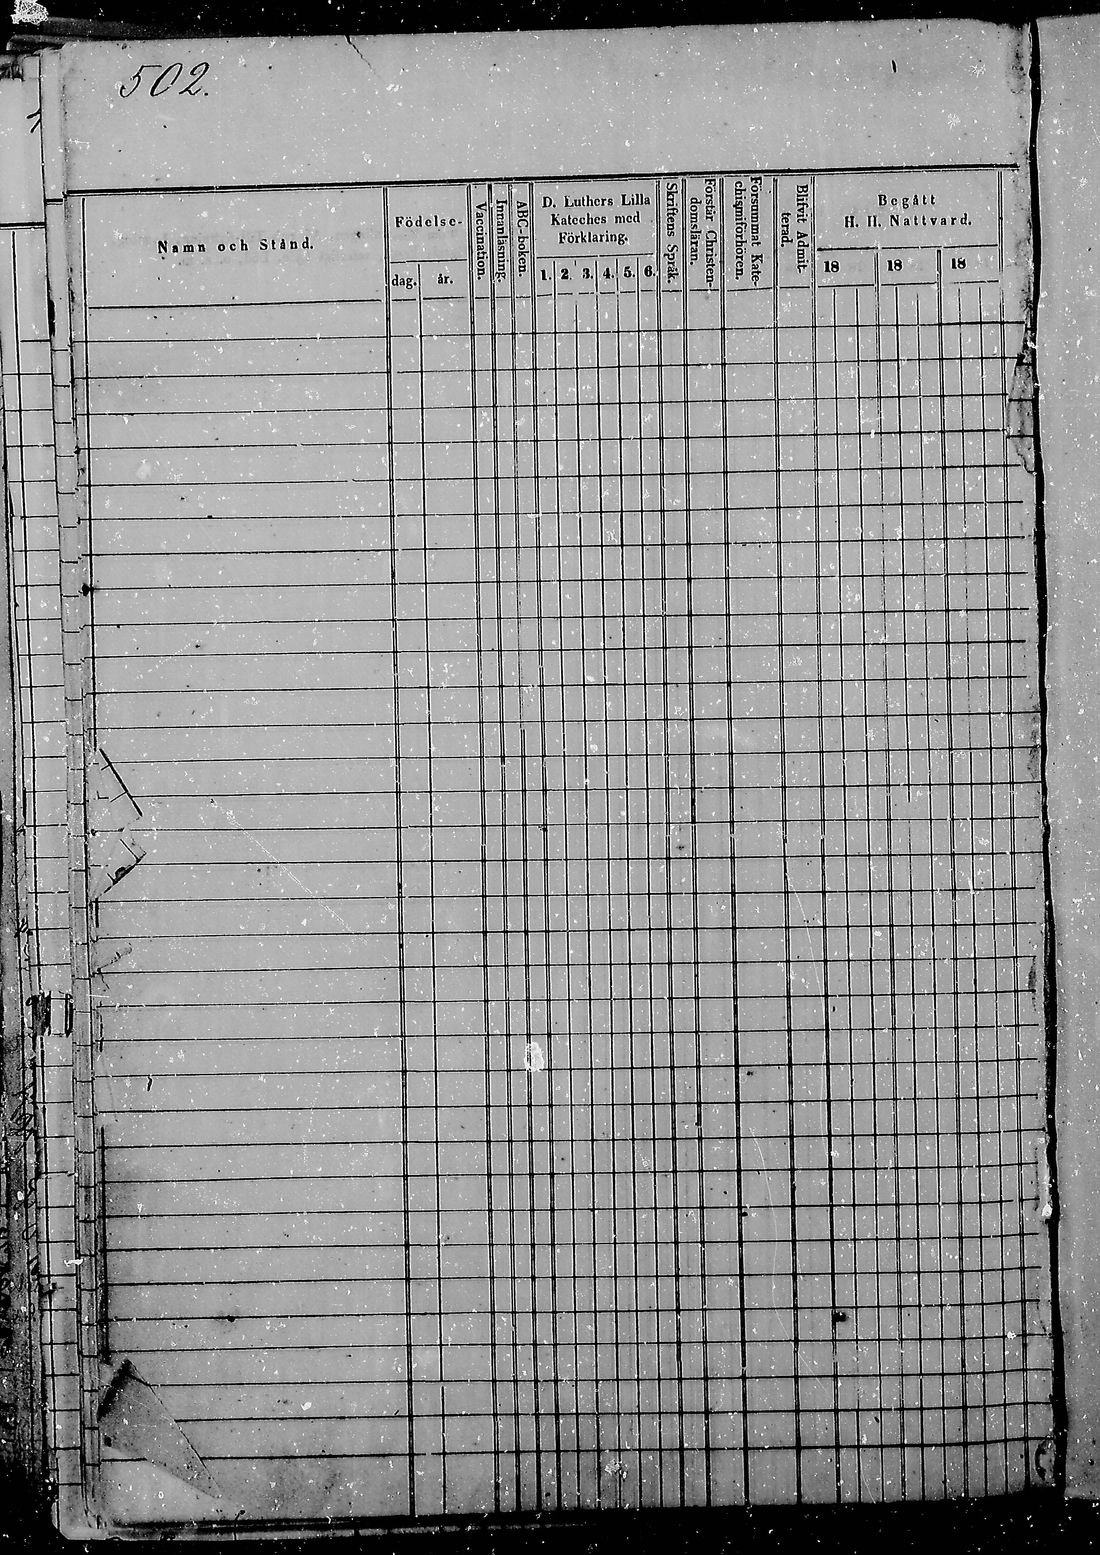 502.
Namn och Stånd.
Födelse-
dag. år.
Vaccination.
Innanläsning.
ABC-boken.
D. Luthers Lilla
Kateches med
Förklaring.
1. 2. 3. 4. 5. 6.
Skriftens Språk.
Förstår Christen-
domsläran.
Försummat Kate-
chismiförhören.
Blifvit Admit-
terad.
Begått
H. H. Nattvard.
18 18 18